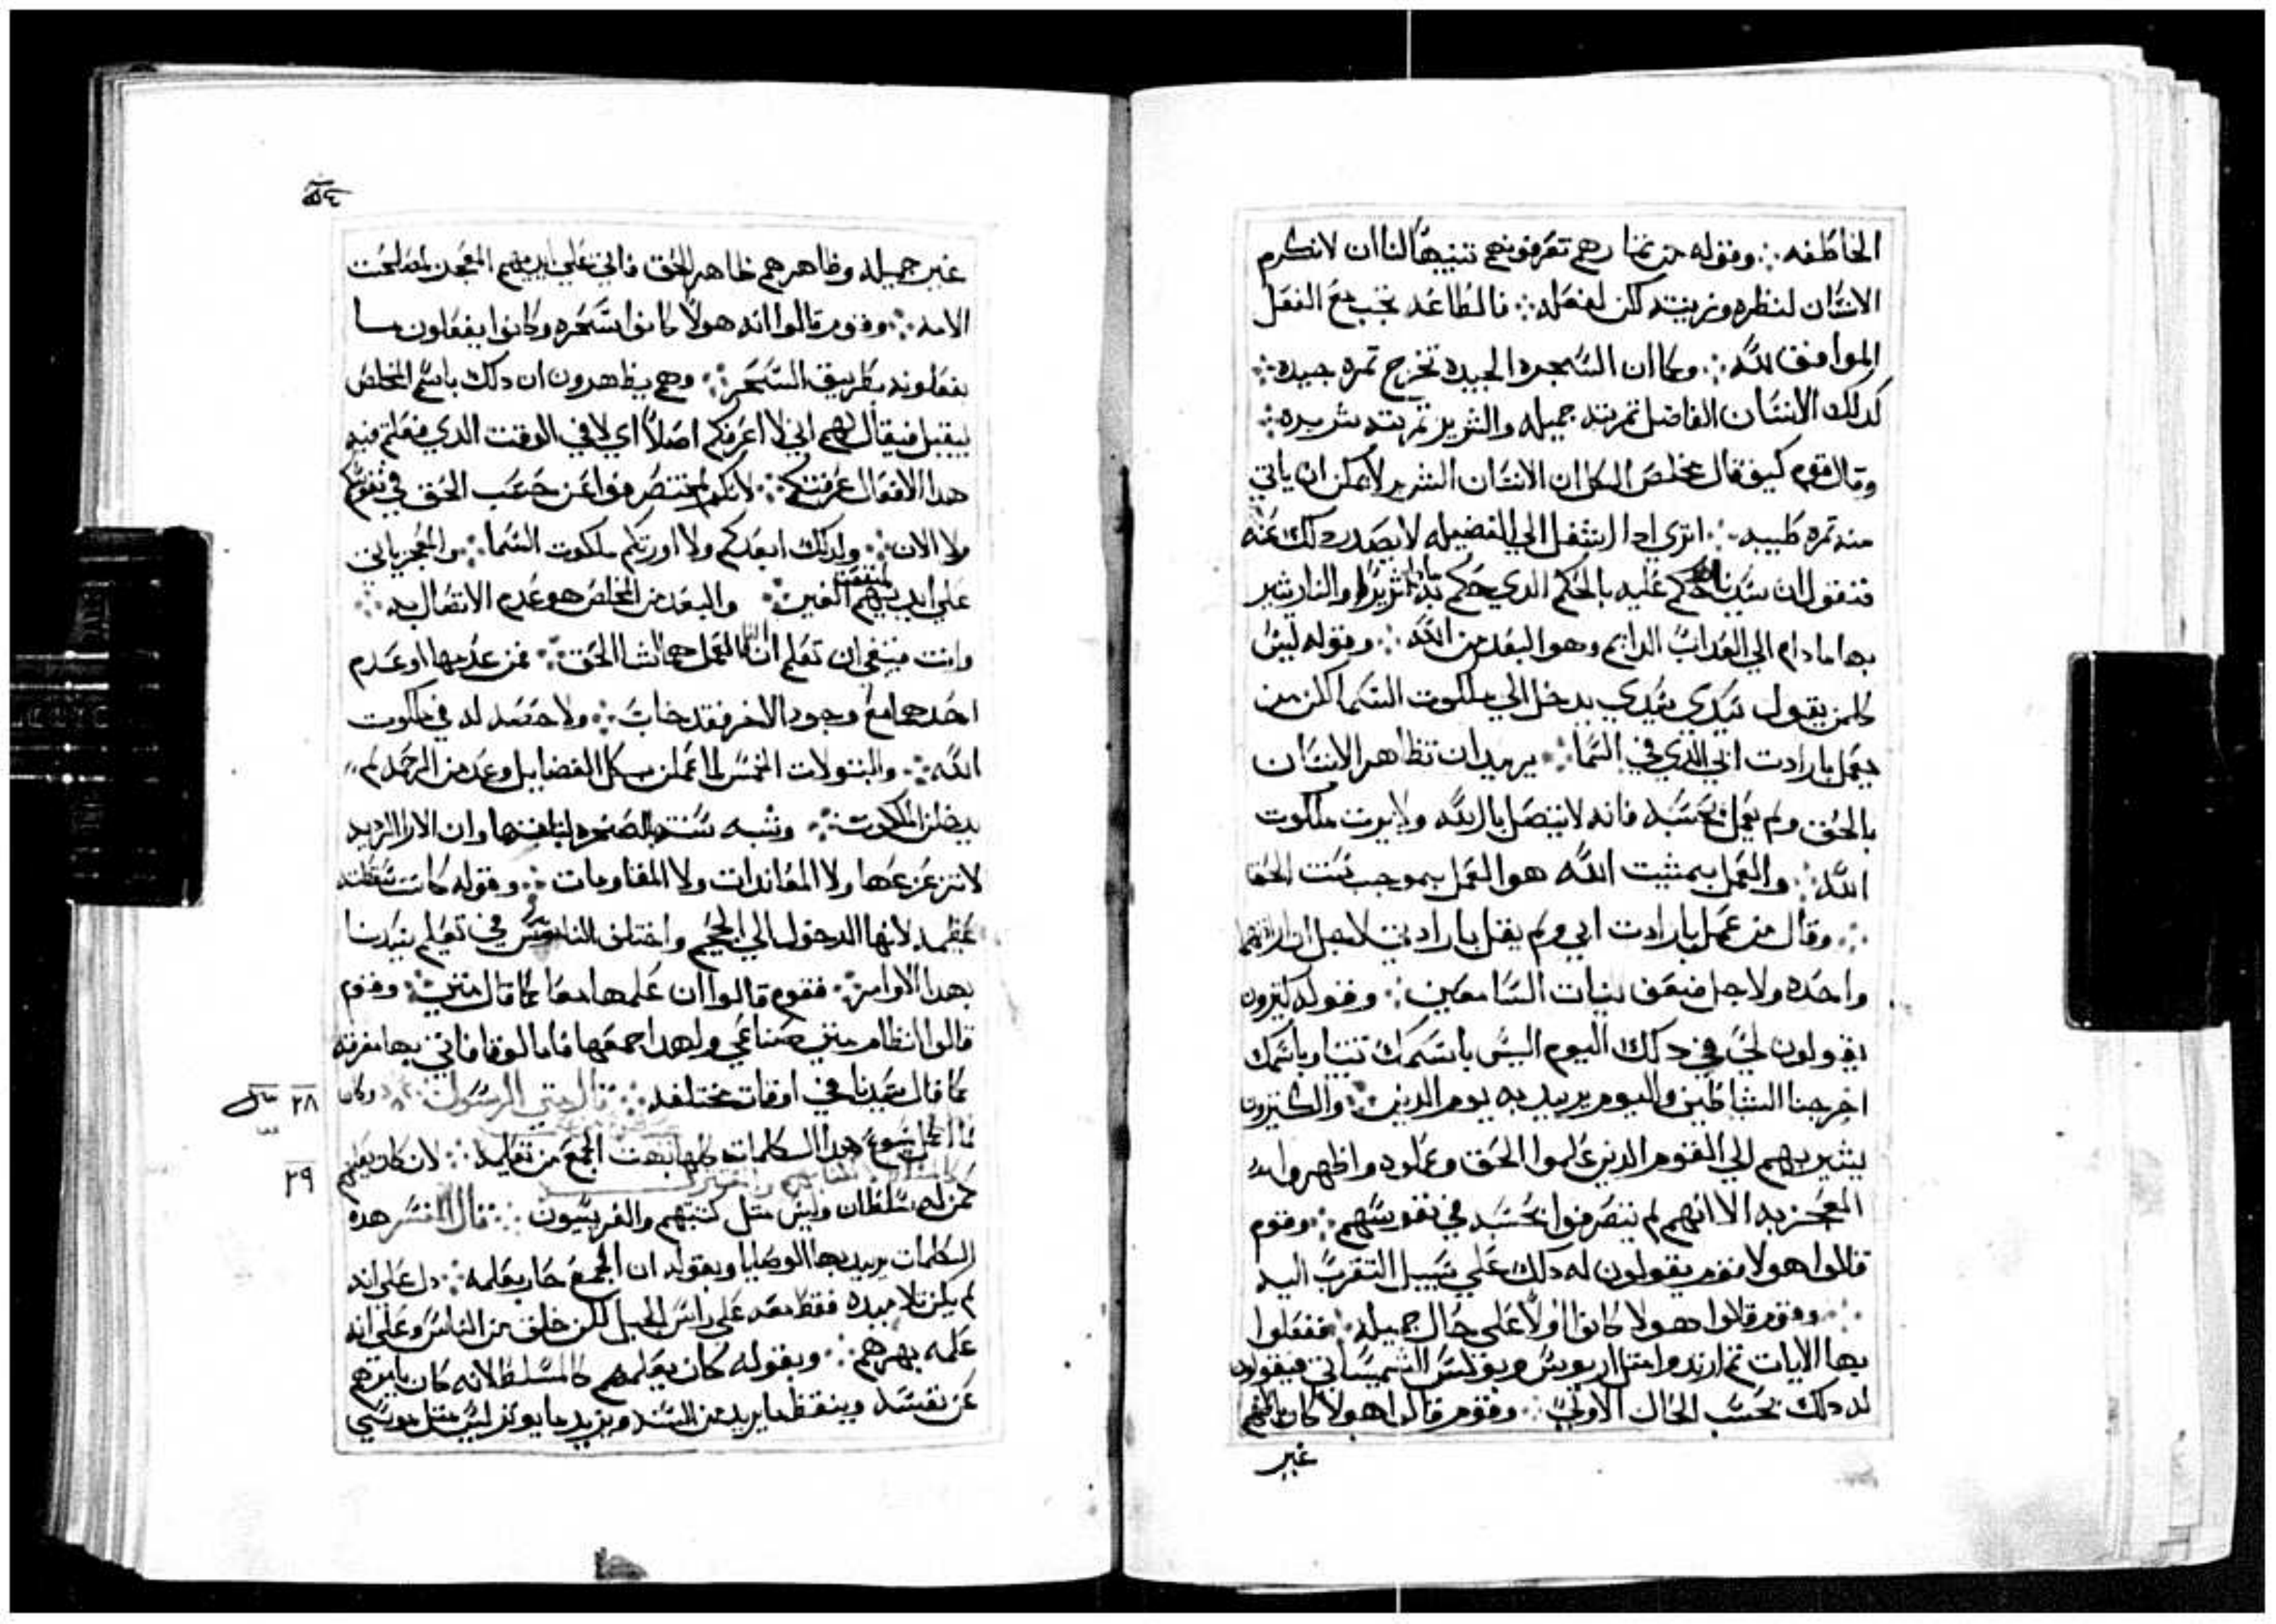 الخاطفه ∴ وقوله من تمارهم تعرفونهم تنبيهًا لنا ان لا نكرم
الانسان لنظره وزينته لكن لفعله ∴ فالطاعه تجب مع الفعل
الموافق لله ∴ وكما ان الشجره الجيده تخرج تمره جيده ∴
كدلك الانسان الفاضل تمرته جميله والشرير تمرته شريره ∴
وقال قوم كيف قال مخلص الكل ان الانسان الشرير لا يمكن ان ياتي
منه تمره طيبه ∴ اترى ادا انتقل الي الفضيله لا يصدر دلك عنه
فنقول ان سيدنا حكم عليه بالحكم الدي حكم والنار شير
بها ما دام الي العداب الدايم وهو البعد من الله ∴ وقوله ليس
كلمن يقول سيدي سيدي يدخل الي ملكوت السما لكن من
يعمل بارادت ابي الدي في السما ∴ يريد ان تظاهر الانسان
بالحق ولم يعمل بحسبه فانه لا يتصل بالله ولا يرت ملكوت
الله ∴ والعمل بمشيت الله هو العمل بموجب سنت الحق
∴ وقال من عمل بارادت ابي ولم يقل بارادتي لاجل ان ارادتهما
واحده ولاجل ضعف نيات السامعين ∴ وقوله كثيرون
يقولون لي في دلك اليوم اليس باسمك تنبينا وباسمك
اخرجنا الشياطين واليوم يريد به يوم الدين ∴ والكثيرون
يشير بهم الي القوم الدين علموا الحق وعملوه واظهروا
المعجز به الا انهم لم يتصرفوا بحسبه في نفوسهم ∴ وقوم
قالوا هولا قوم يقولون له دلك علي سبيل التقرب اليه
∴ وقوم قالوا هولا كانوا اولاً علي حال جميله ∴ ففعلوا
بها الايات تم ارتدوا متل اريوس وبولس الشميساطي فيقولون
له دلك بحسب الحال الاولي ∴ وقوم قالوا هولا كان باطنهم
غير
غير جميله وظاهرهم ظاهر الحق فاتي علي ايديهم المعجز لمصلحت
الامه ∴ وقوم قالوا انه هولا كانوا سحره وكانوا يفعلون ما
يفعلونه بطريق السحر ∴ وهم يظهرون ان دلك باسم المخلص
ليقبل فيقال لهم اني لا اعرفكم اصلاً اي لا في الوقت الدي فعلتم فيه
هدا الافعال عرفتكم ∴ لانكم لم تتصرفوا عن حسب الحق في نفوسكم
ولا الان ∴ ولدلك ابعدكم ولا اورتكم ملكوت السما ∴ والمعجز ياتي
علي ايديهم لمنفعت الغير ∴ والبعد من المخلص هو عدم الاتصال به ∴
وانت فينبغي ان تعلم ان العمل هما لشا الحق ∴ فمن عدمها او عدم
احدهما مع وجود الاخر فقد خاب ∴ ولا حصه له في ملكوت
الله ∴ والبتولات الخمس لما عملن بكل الفضايل وعدمن الرحمه لم
يدخلن الملكوت ∴ وشبه سنته بالصخره لتباتها وان الارا الرديه
لا تزعزعها ولا المعاندات ولا المقاومات ∴ وقوله كانت سقطته
عظيمه لانها الدخول الي الجحيم واختلف الناس في تعليم سيدنا
بهدا الاوامر ∴ فقوم قالوا ان علمها معا كما قال متي ∴ وقوم
قالوا النظام متي صناعي ولهدا جمعها فاما لوقا فاتي بها مفرقه
كما قال سيدنا في اوقات مختلفه ∴ قال متي الرسول ∴ وكان
٢٨
لما اكمل يسوع هدا الكلمات كلها بهت الجمع من تعليمه ∴ لان كان يعلمهم
٢٩
كمن له سلطان وليس متل كتبتهم والفريسيون ∴ قال المفسر هده
الكلمات يريد بها الوصايا وبقوله ان الجمع حار بعلمه ∴ دل علي انه
لم يكن تلاميده فقط معه علي راس الجبل لكن خلق من الناس وعلي انه
علمه بهرهم ∴ وبقوله كان يعلمهم كالمسلط لانه كان يامرهم
عن نفسه وينقض ما يريد من السنه ويزيد ما يوتر ليس متل موسي